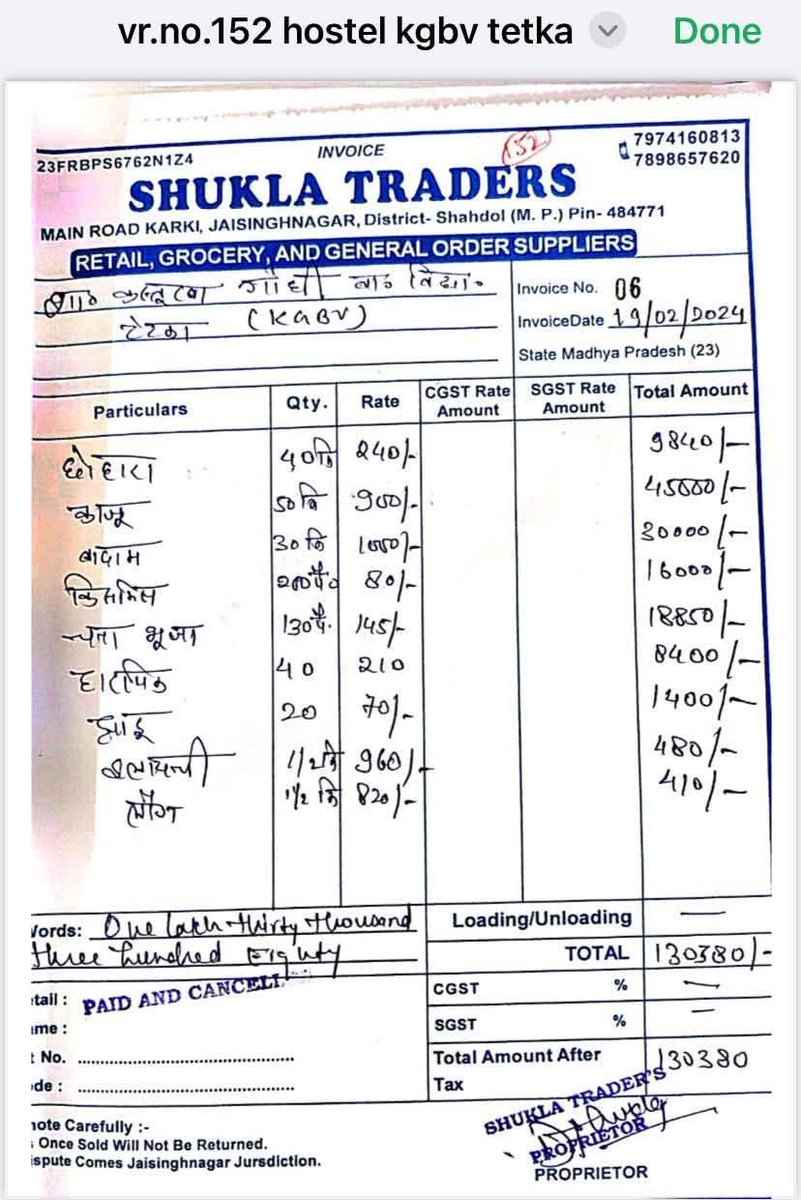 vr.no.152 hostel kgbv tetka
Done
23FRBPS6762N1Z4
INVOICE
152
7974160813
7898657620
SHUKLA TRADERS
MAIN ROAD KARKI, JAISINGHNAGAR, District- Shahdol (M. P.) Pin- 484771
RETAIL, GROCERY, AND GENERAL ORDER SUPPLIERS
गाँधी बा० विद्या०
टेटका (KGBV)
Invoice No. 06
InvoiceDate 19/02/2024
State Madhya Pradesh (23)
Particulars Qty. Rate CGST Rate Amount SGST Rate Amount Total Amount
छोहारा 40कि 240/- 9840/-
काजू 50कि 900/- 45000/-
बादाम 30कि 1000/- 30000/-
किसमिस 200पै० 80/- 16000/-
चना भूजा 130पै. 145/- 18850/-
हाटपिक 40 210 8400/-
झाड़ू 20 70/- 1400/-
1/2कि 960/- 480/-
लौंग 1/2 कि 820/- 410/-
Words: One lakh thirty thousand
three hundred Eighty
Loading/Unloading —
TOTAL 130380/-
etail : PAID AND CANCELL
CGST % —
ame :
SGST % —
t No.
Total Amount After Tax 130380
de :
SHUKLA TRADER'S
PROPRIETOR
note Carefully :-
Once Sold Will Not Be Returned.
ispute Comes Jaisinghnagar Jursdiction.
PROPRIETOR